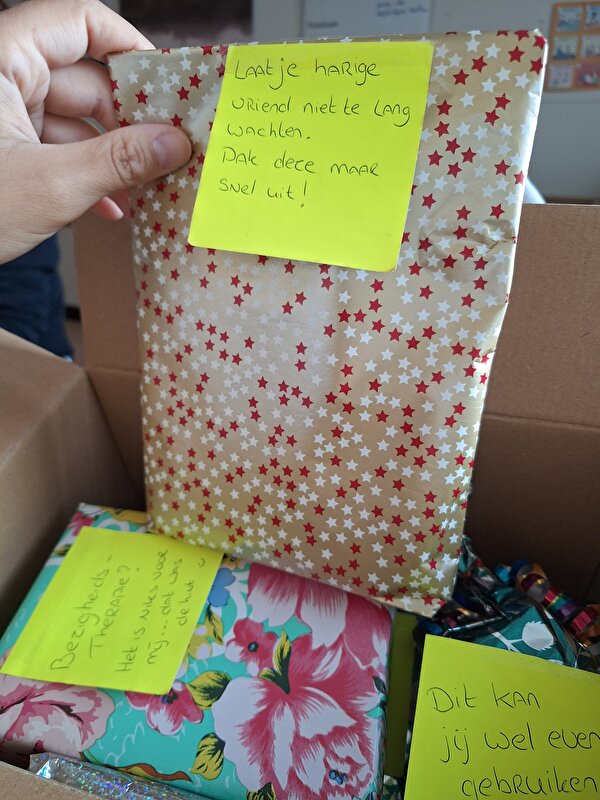 Laatje harige
vriend niet te lang
wachten.
Pak deze maar
snel uit!
Bezigheds-
Therapie?
Het is niks voor
mij... dat was
de hint :)
Dit kan
jij wel even
gebruiken